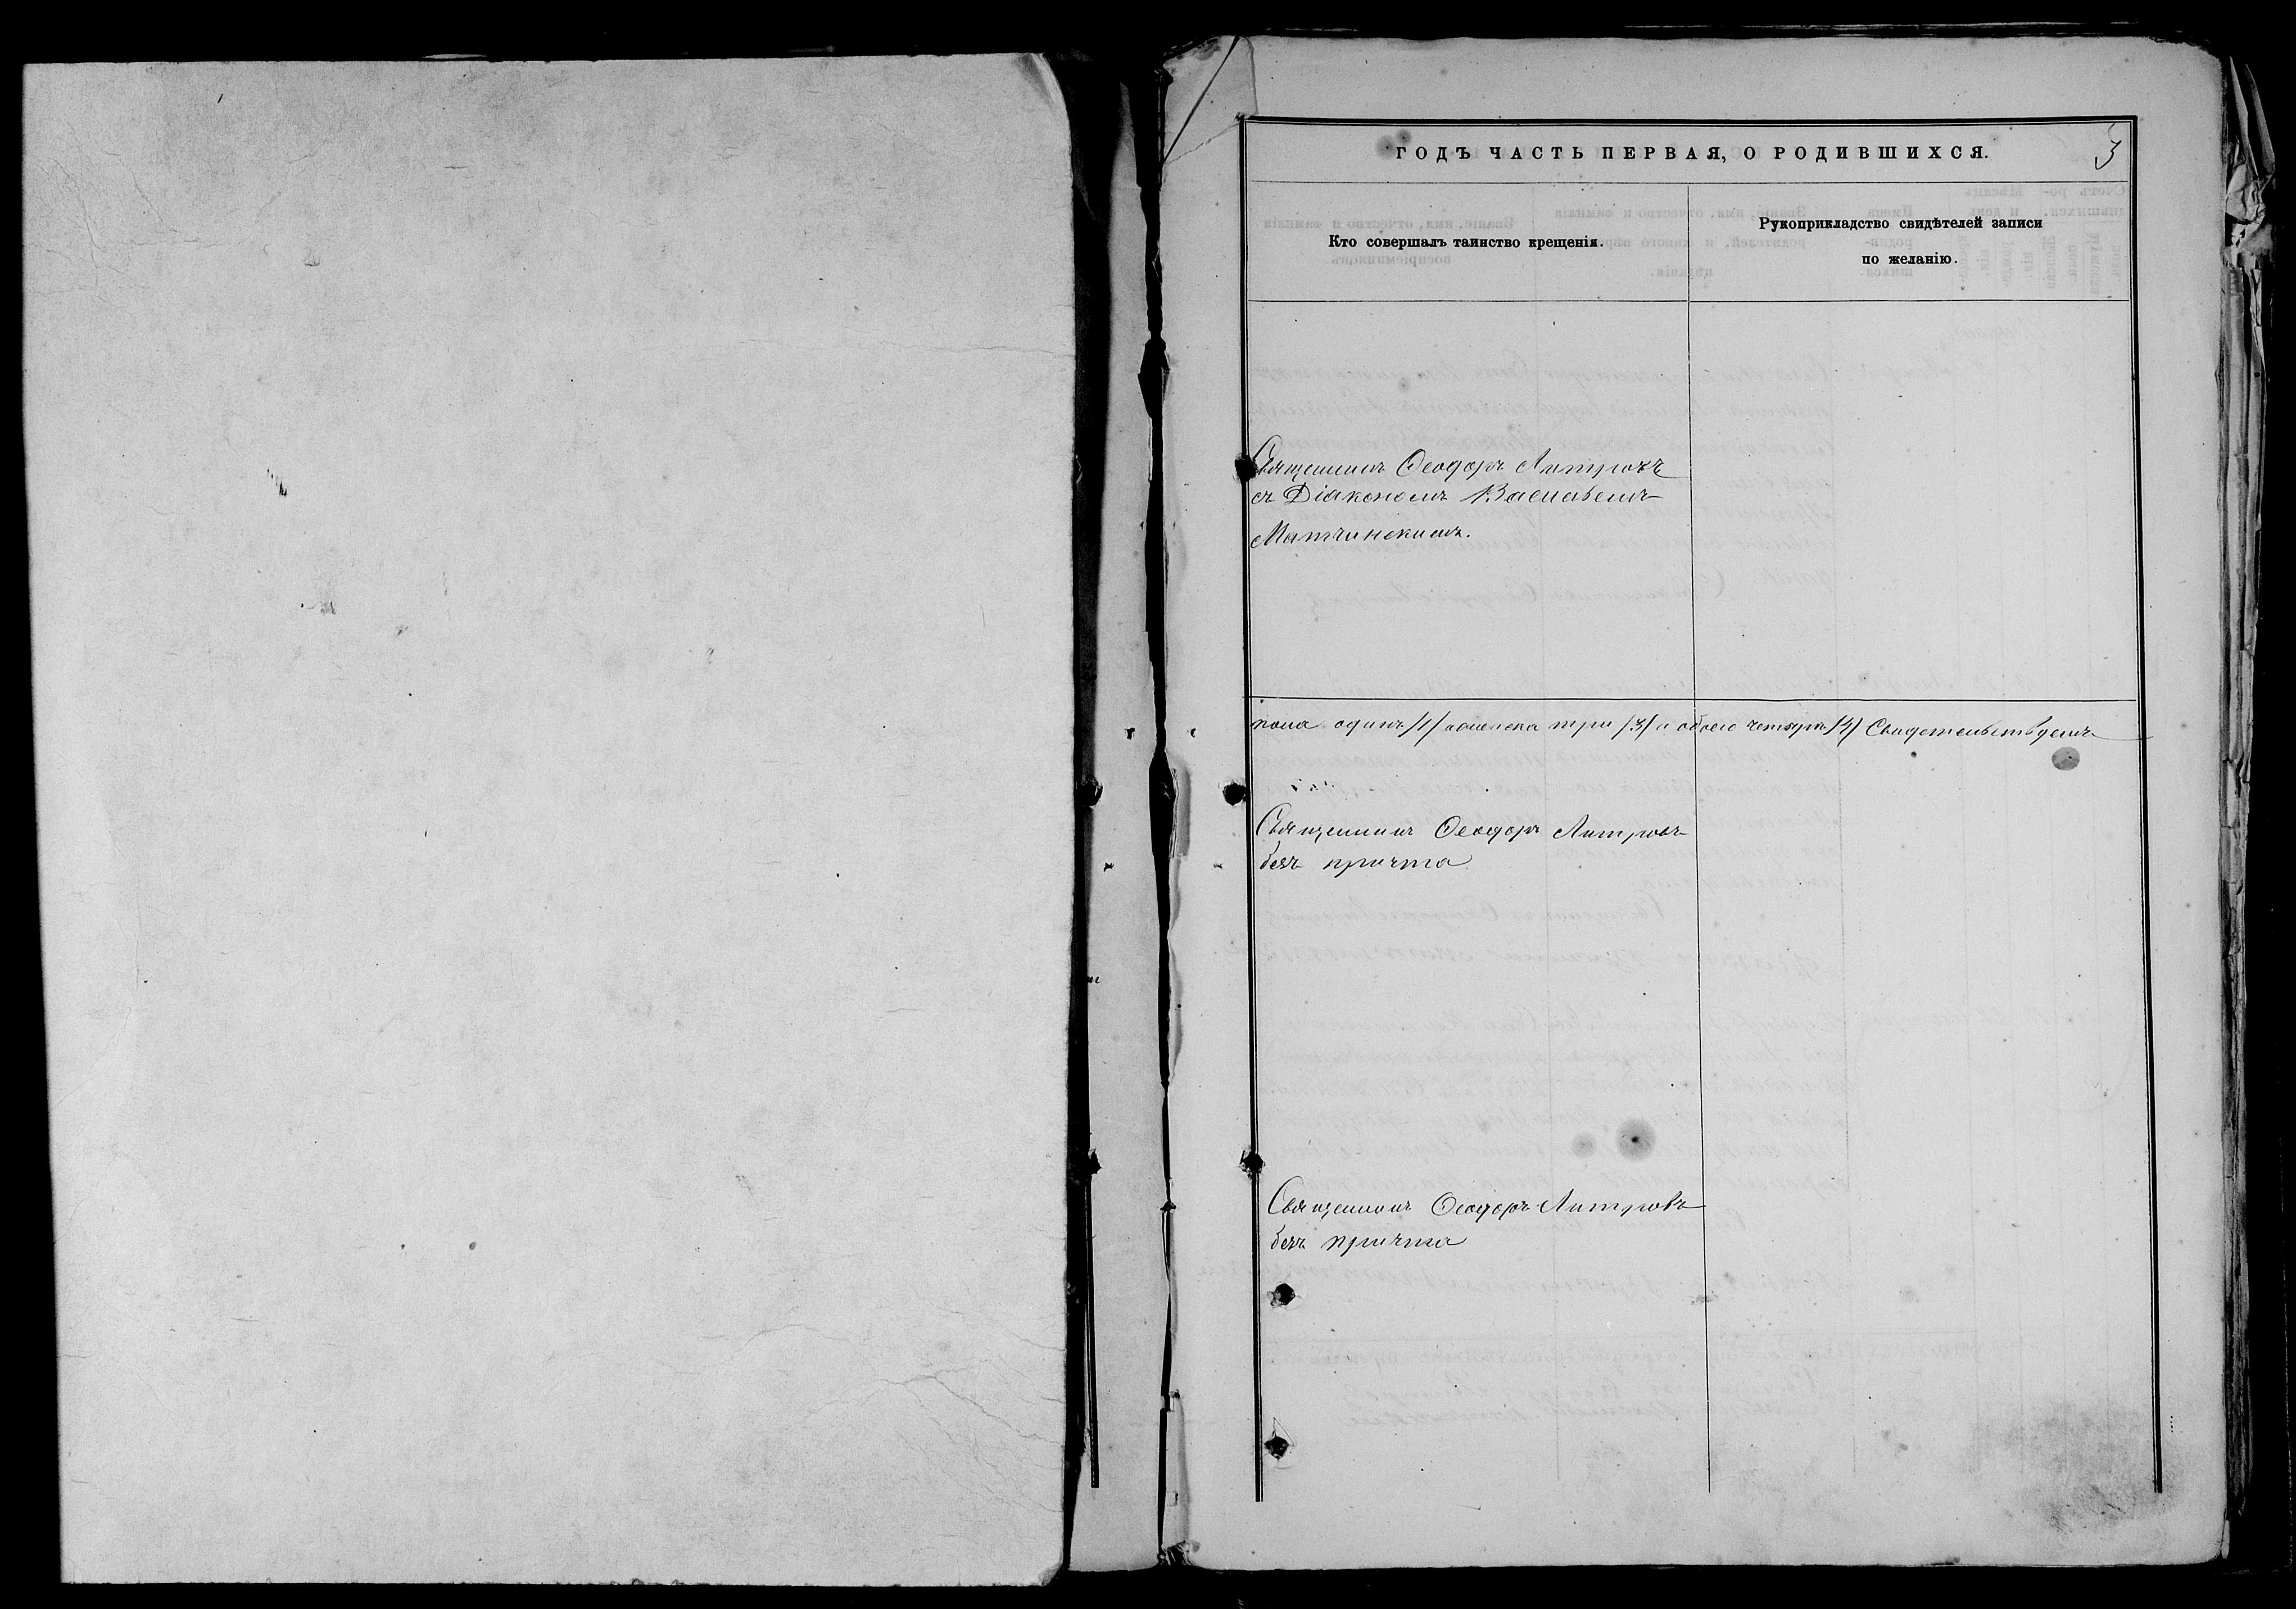 ГОДЪ ЧАСТЬ ПЕРВАЯ, О РОДИВШИХСЯ.
3
Кто совершалъ таинство крещенія.
Рукоприкладство свидѣтелей записи
по желанію.
Священникъ Ѳеодоръ
съ Діакономъ Василіемъ
Матчинскимъ.
пола одинъ /1/ женска три /3/ а обоего четыри /4/ Свидетельствуемъ
Священникъ Ѳеодоръ
безъ причта
Священникъ Ѳеодоръ
безъ причта